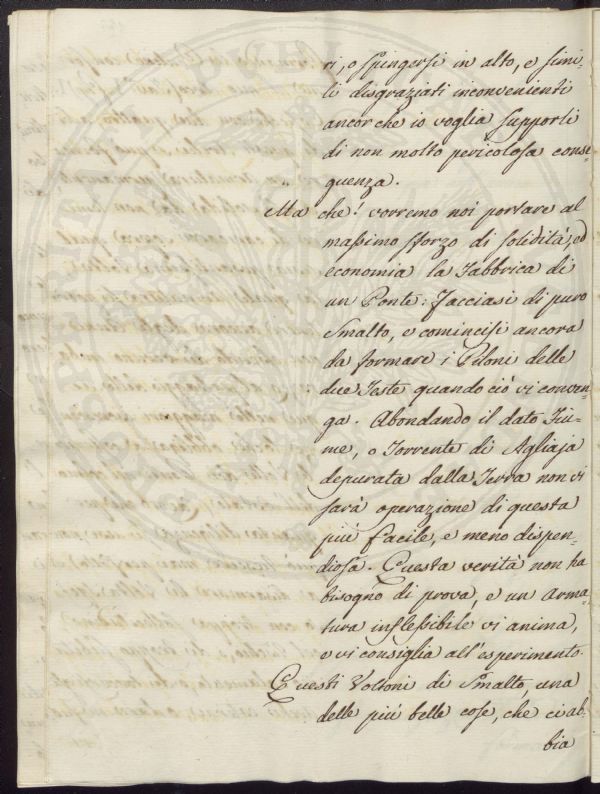 ri, o spingersi in alto, e simi-
li disgraziati inconvenienti
ancorchè io voglia supporli
di non molto pericolosa conse-
guenza.
Ma che! vorremo noi portare al
massimo sforzo di solidità, ed
economia la Fabbrica di
un Ponte: facciasi di puro
Smalto, e comincisi ancora
da formare i Piloni delle
due Teste quando ciò vi conven-
ga. Abondando il dato Fiu-
me, o Torrente di Agliaja
depurata dalla Terra non vi
sarà operazione di questa
più facile, e meno dispen-
diosa. Questa verità non ha
bisogno di prova, e un Arma-
tura inflessibile vi anima,
e vi consiglia all'esperimento.
Questi Voltoni di Smalto, una
delle più belle cose, che ci ab-
bia